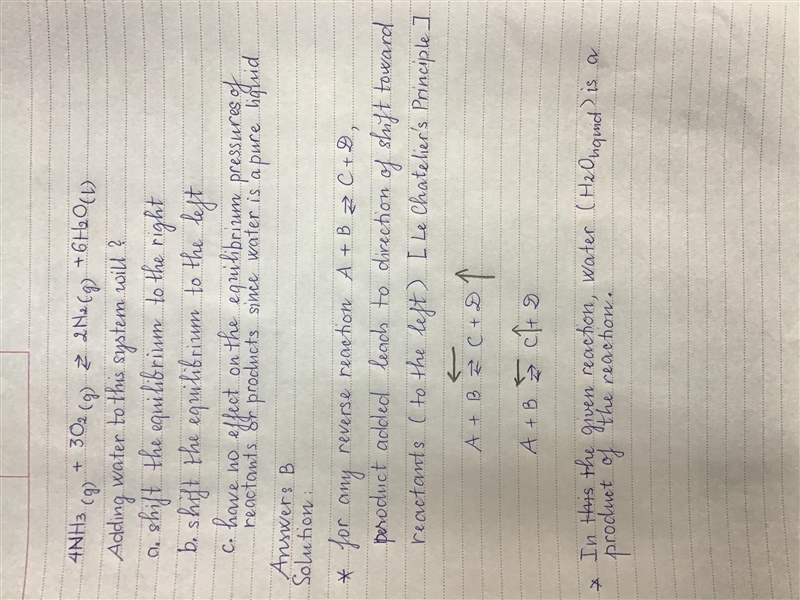 4NH3 (g) + 3O2 (g) ⇄ 2N2 (g) + 6H2O (l)
Adding water to this system will?
a. shift the equilibrium to the right
b. shift the equilibrium to the left
c. have no effect on the equilibrium pressures of
reactants or products since water is a pure liquid
Answer: B
Solution:
* for any reverse reaction A + B ⇄ C + D,
product added leads to direction of shift toward
reactants (to the left) [Le Chatelier's Principle]
←
A + B ⇄ C + D ↑
←
A + B ⇄ C↑ + D
* In this the given reaction, water (H2O liquid) is a
product of the reaction.